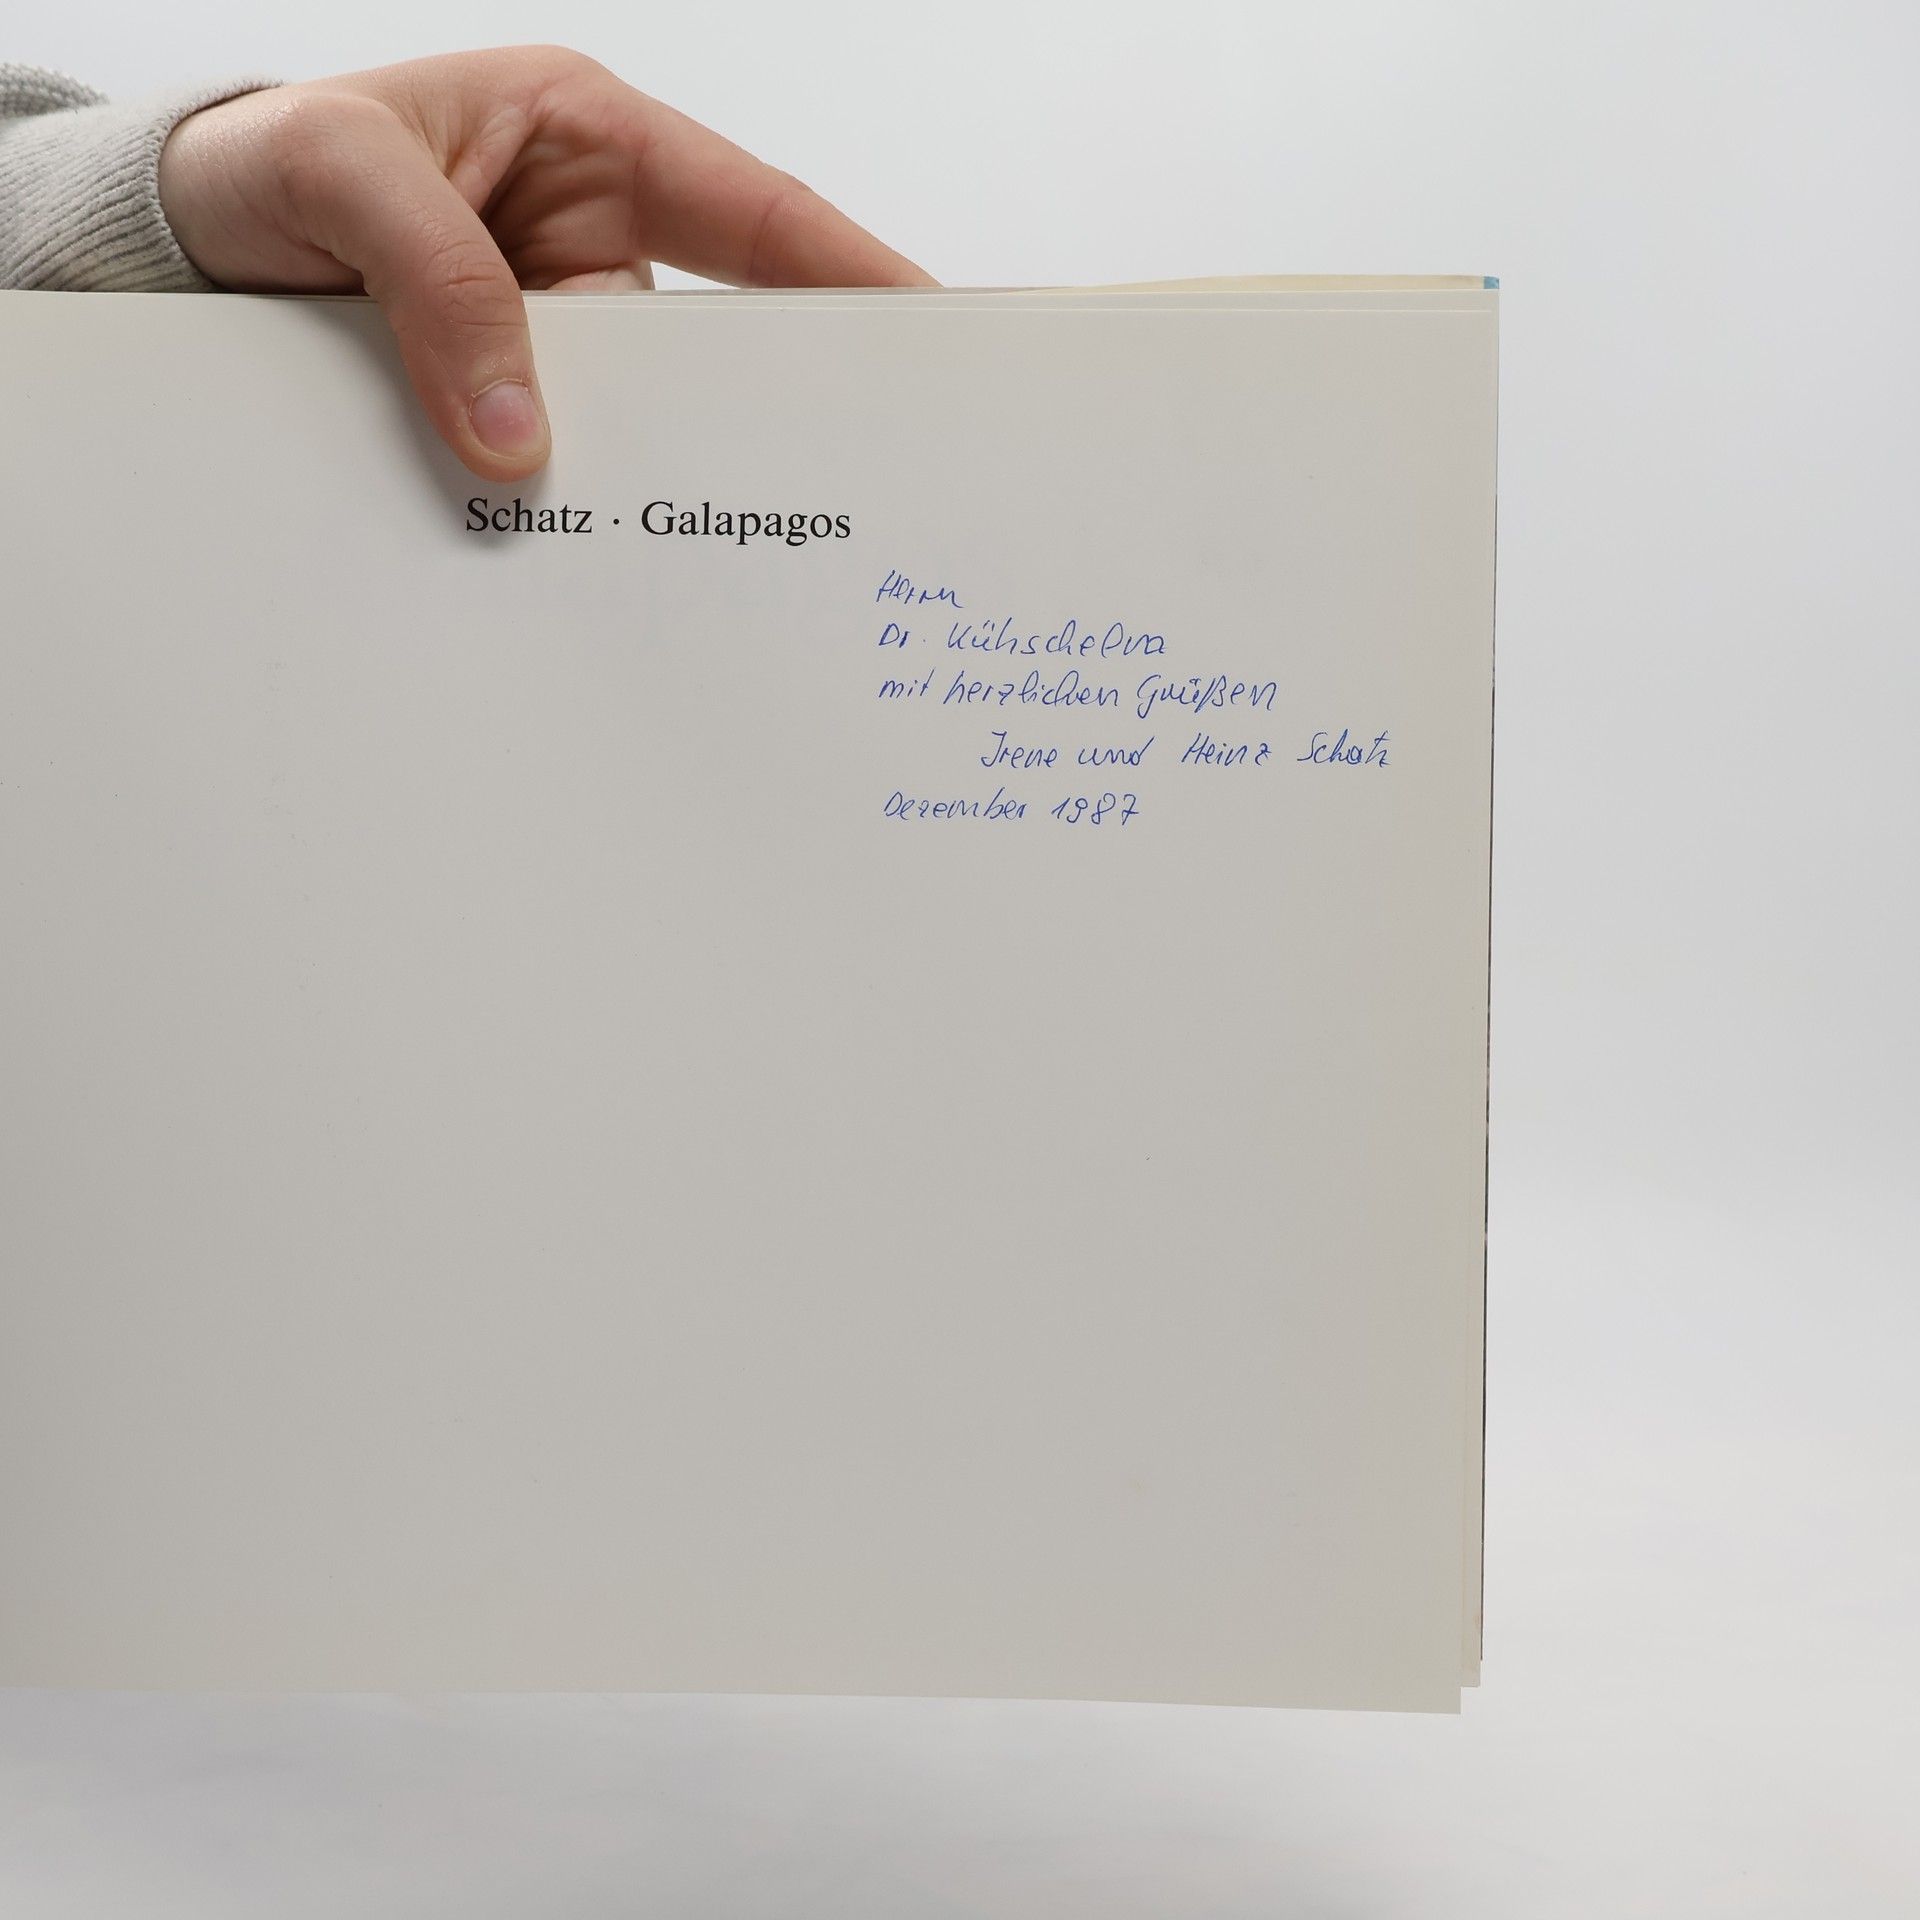 Schatz · Galapagos
Herrn
Dr. Kühschelm
mit herzlichen Grüßen
Irene und Heinz Schatz
Dezember 1987